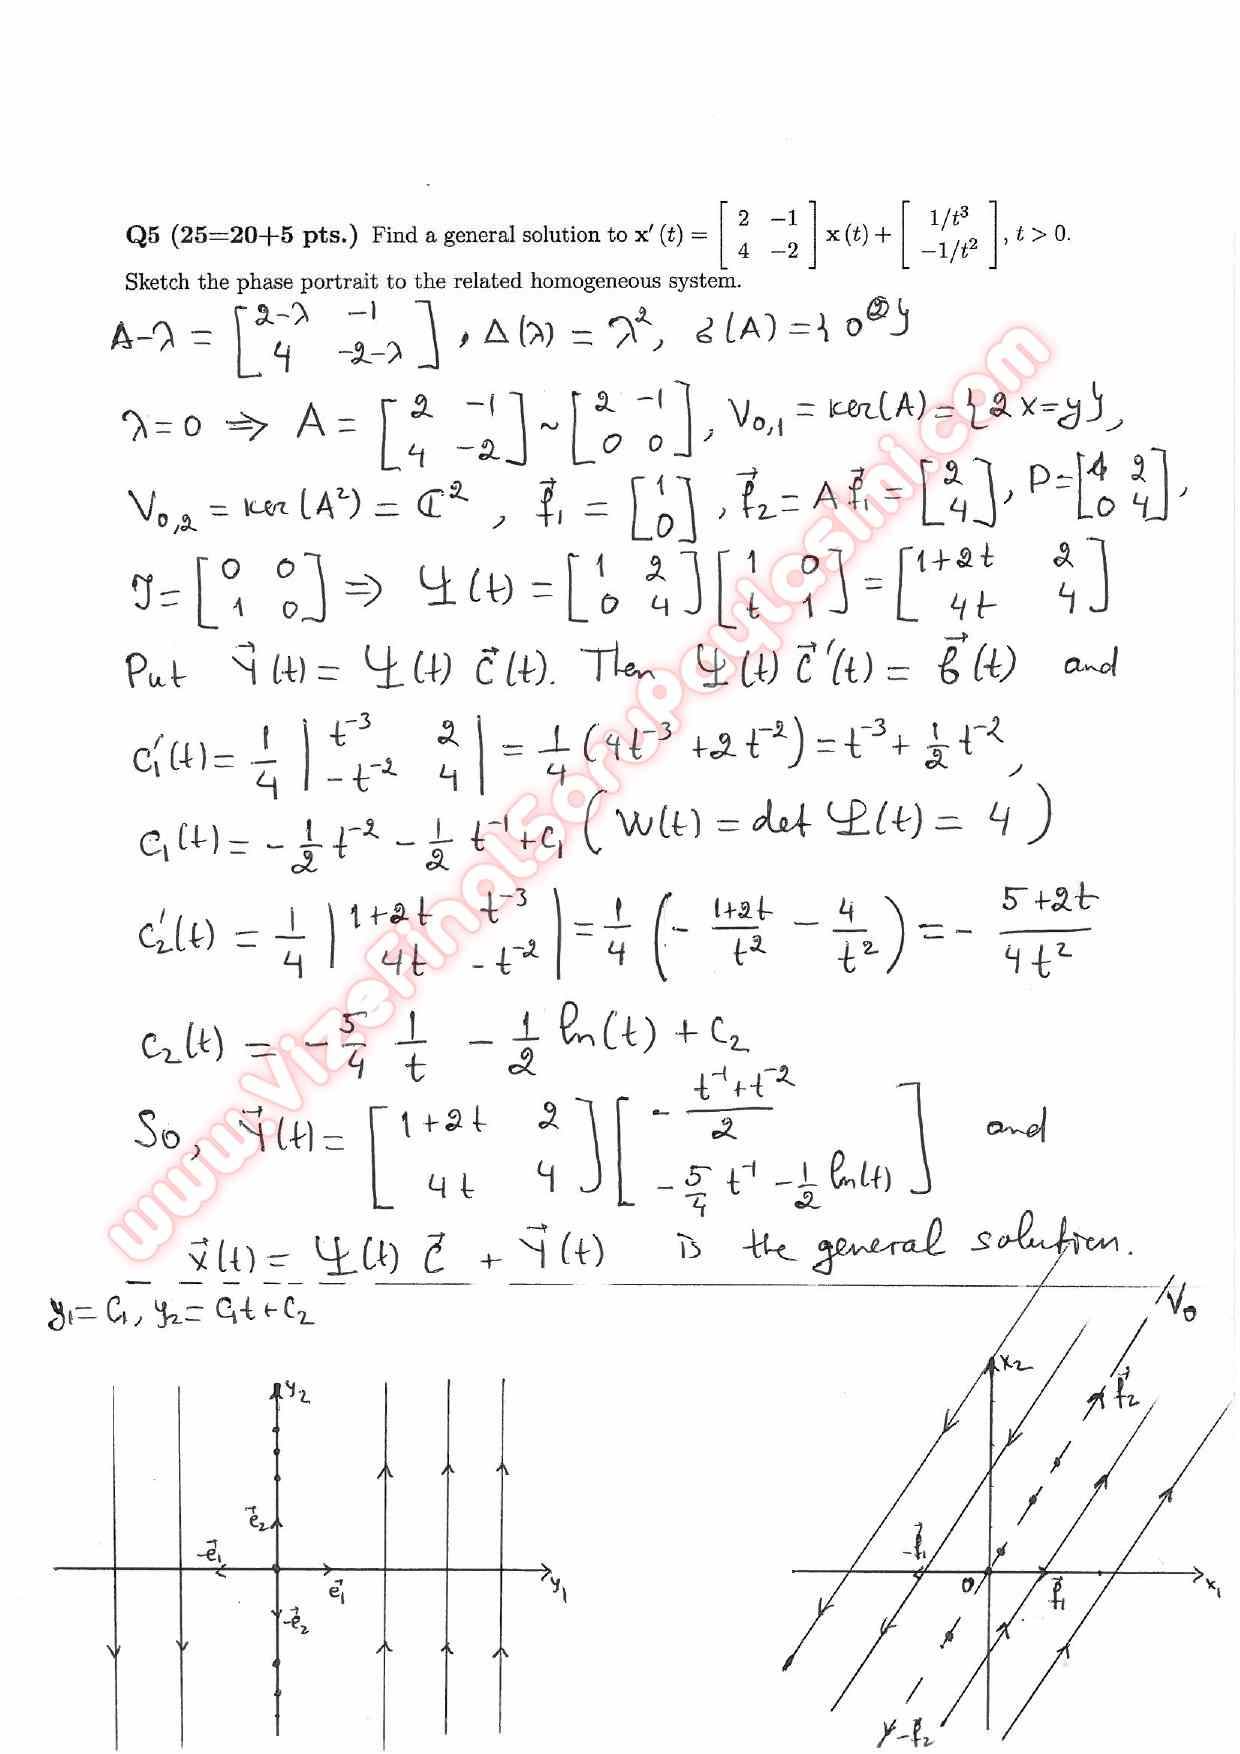 Q5 (25=20+5 pts.) Find a general solution to x′(t) = [2 −1; 4 −2] x(t) + [1/t³; −1/t²], t > 0.
Sketch the phase portrait to the related homogeneous system.
A-λ = [2-λ -1; 4 -2-λ], Δ(λ) = λ², σ(A) = {0^②}
λ=0 ⇒ A = [2 -1; 4 -2] ~ [2 -1; 0 0], V₀,₁ = ker(A) = {2x=y},
V₀,₂ = ker(A²) = ℂ², f⃗₁ = [1; 0], f⃗₂ = A f⃗₁ = [2; 4], P = [1 2; 0 4],
J = [0 0; 1 0] ⇒ Ψ(t) = [1 2; 0 4] [1 0; t 1] = [1+2t 2; 4t 4]
Put Y⃗(t) = Ψ(t) c⃗(t). Then Ψ(t) c⃗′(t) = b⃗(t) and
c₁′(t) = 1/4 |t⁻³ 2; -t⁻² 4| = 1/4 (4t⁻³ + 2t⁻²) = t⁻³ + 1/2 t⁻²,
c₁(t) = -1/2 t⁻² - 1/2 t⁻¹ + c₁ (W(t) = det Ψ(t) = 4)
c₂′(t) = 1/4 |1+2t t⁻³; 4t -t⁻²| = 1/4 (- (1+2t)/t² - 4/t²) = - (5+2t)/4t²
c₂(t) = -5/4 1/t - 1/2 ln(t) + c₂
So, Y⃗(t) = [1+2t 2; 4t 4] [- (t⁻¹+t⁻²)/2; -5/4 t⁻¹ - 1/2 ln(t)] and
x⃗(t) = Ψ(t) c⃗ + Y⃗(t) is the general solution.
y₁ = c₁, y₂ = c₁t + c₂
V₀
y₂
x₂
f⃗₂
e⃗₂
-e⃗₁
-f⃗₁
e⃗₁
y₁
0
f⃗₁
x₁
-e⃗₂
-f⃗₂
www.VizeFinalSoruPaylasimi.com